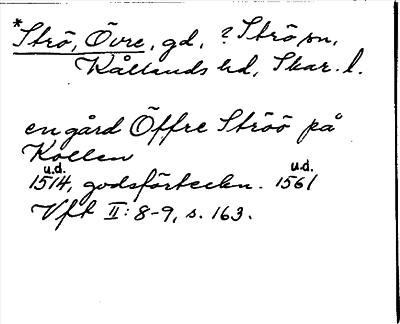 *Strö, Övre, gd, ? Strö sn,
Kållands hd, Skar. l.
en gård Öffre Ströö på
Kollen
u.d. u.d.
1514, godsförteckn. 1561
Vft II: 8-9, s. 163.